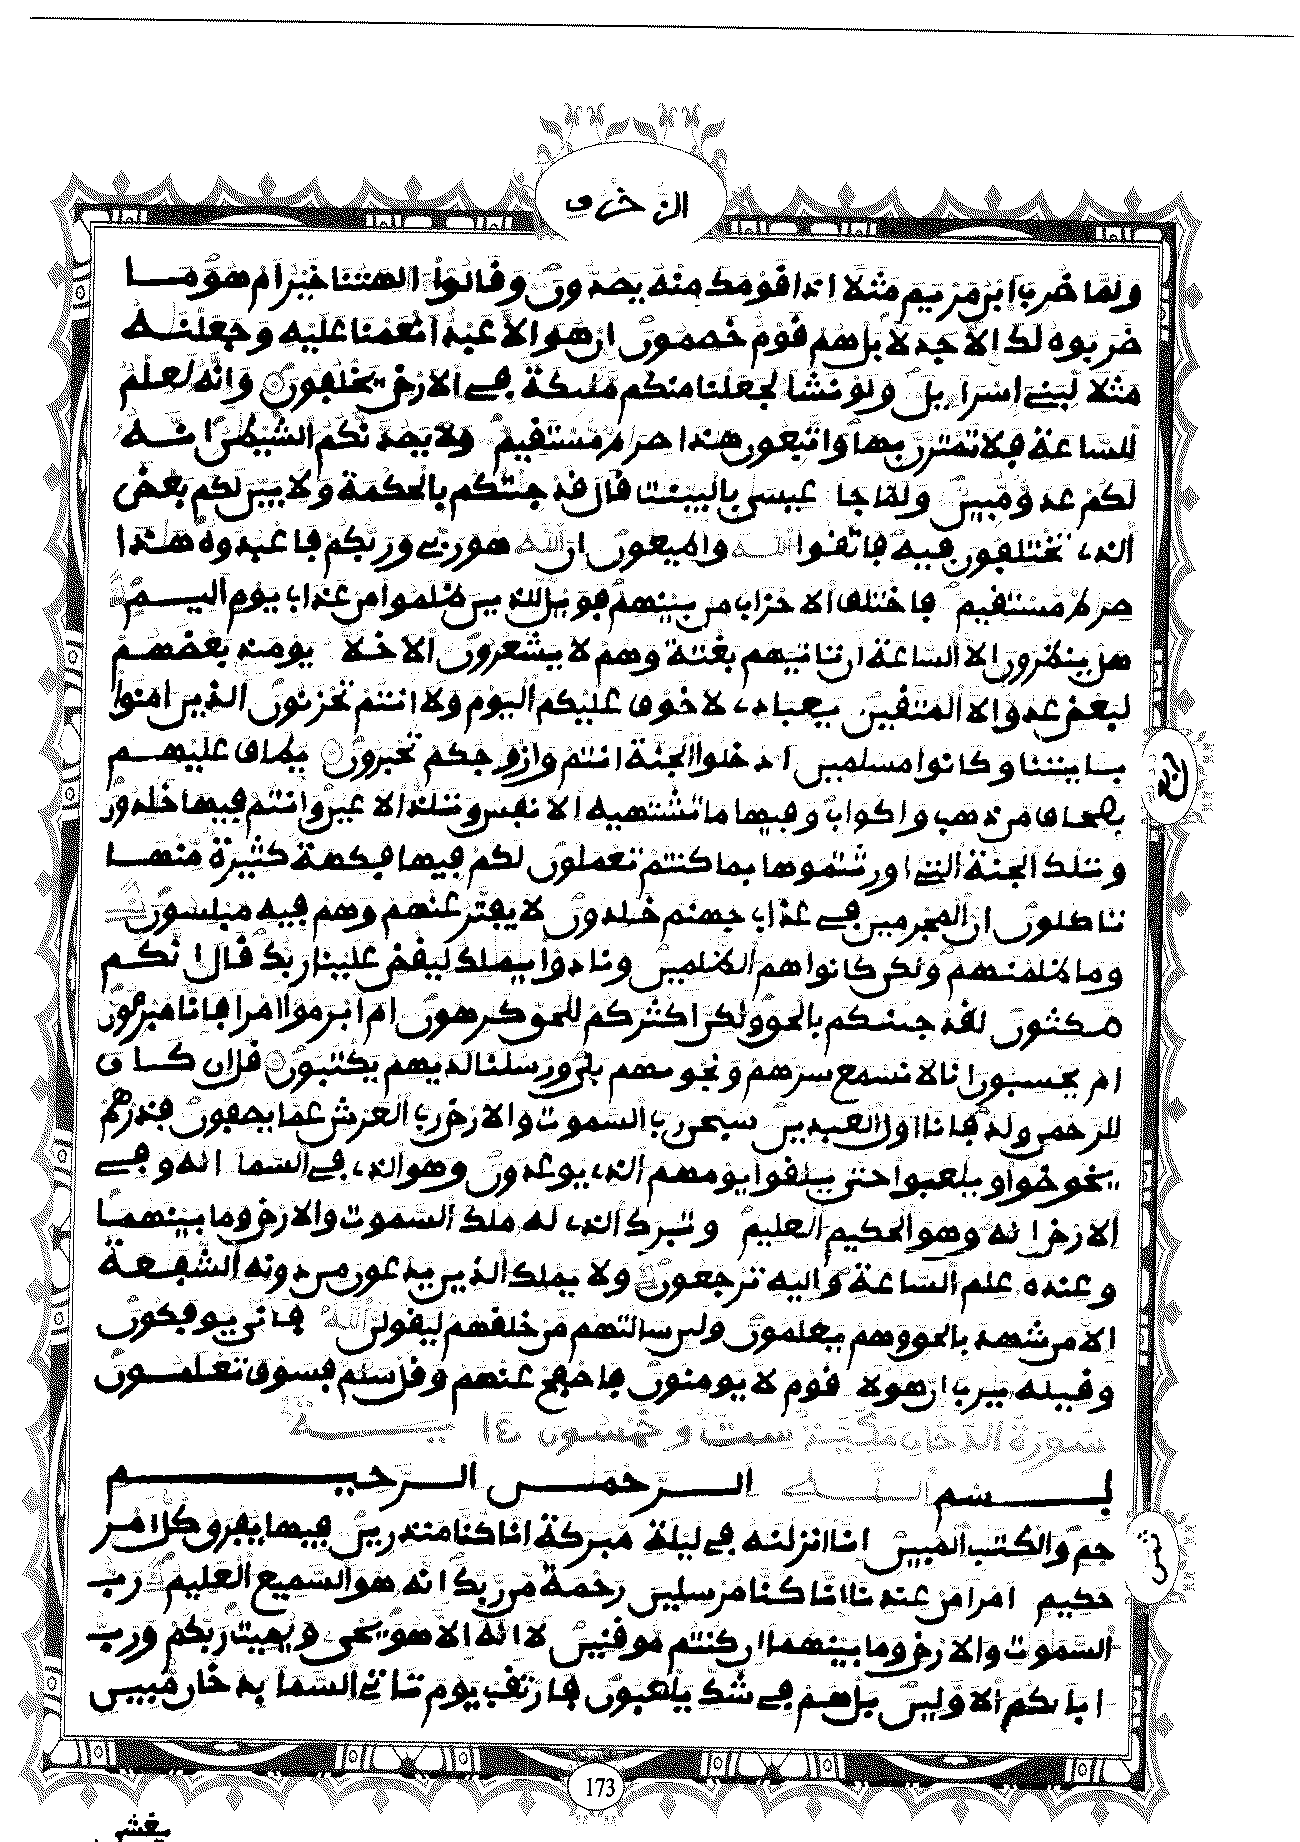 الزخرف
ولما ضرب ابن مريم مثلا اذا قومك منه يصدون وقالوا الهتنا خير ام هو ما
ضربوه لك الا جدلا بل هم قوم خصمون ان هو الا عبد انعمنا عليه وجعلنه
مثلا لبنے اسرا يل ولو نشا لجعلنا منكم مليكة في الارض يخلفون وانه لعلم
للساعة فلا تمترن بها واتبعون هذا صرط مستقيم ولا يصدنكم الشيطن انه
لكم عدو مبين ولما جا عيسى بالبينت قال قد جيتكم بالحكمة ولابين لكم بعض
الذے تختلفون فيه فاتقوا الله واطيعون ان الله هو ربے وربكم فاعبدوه هذا
صرط مستقيم فاختلف الاحزاب من بينهم فويل للذين ظلموا من عذاب يوم اليم
هل ينظرون الا الساعة ان تاتيهم بغتة وهم لا يشعرون الاخلا يوميذ بعضهم
لبعض عدو الا المتقين يعبادے لا خوف عليكم اليوم ولا انتم تحزنون الذين امنوا
بايتنا وكانوا مسلمين ادخلوا الجنة انتم وازوجكم تحبرون يطاف عليهم
بصحاف من ذهب واكواب وفيها ما تشتهيه الانفس وتلذ الاعين وانتم فيها خلدون
وتلك الجنة التے اورثتموها بما كنتم تعملون لكم فيها فكهة كثيرة منها
تاكلون ان المجرمين في عذاب جهنم خلدون لا يفتر عنهم وهم فيه مبلسون
وما ظلمنهم ولكن كانوا هم الظلمين ونادوا يملك ليقض علينا ربك قال انكم
مكثون لقد جينكم بالحق ولكن اكثركم للحق كرهون ام ابرموا امرا فانا مبرمون
ام يحسبون انا لا نسمع سرهم ونجويهم بلى ورسلنا لديهم يكتبون قل ان كان
للرحمن ولد فانا اول العبدين سبحن رب السموت والارض رب العرش عما يصفون فذرهم
يخوضوا ويلعبوا حتى يلقوا يومهم الذے يوعدون وهو الذے في السما اله وفي
الارض اله وهو الحكيم العليم وتبرك الذے له ملك السموت والارض وما بينهما
وعنده علم الساعة واليه ترجعون ولا يملك الذين يدعون من دونه الشفعة
الا من شهد بالحق وهم يعلمون ولين سالتهم من خلقهم ليقولن الله فانى يوفكون
وقيله يرب ان هولا قوم لا يومنون فاصفح عنهم وقل سلم فسوف تعلمون
سورة الدخان مكية ست وخمسون اية
بسم الله الرحمن الرحيم
حم والكتب المبين انا انزلنه في ليلة مبركة انا كنا منذرين فيها يفرق كل امر
حكيم امرا من عندنا انا كنا مرسلين رحمة من ربك انه هو السميع العليم رب
السموت والارض وما بينهما ان كنتم موقنين لا اله الا هو يحي ويميت ربكم ورب
ابايكم الاولين بل هم في شك يلعبون فارتقب يوم تاتے السما بدخان مبين
ثمن
173
يغشى